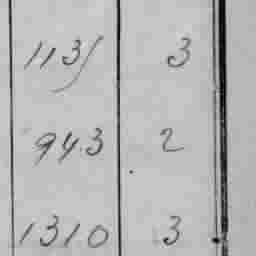 113/ 3
943 2
1310 3